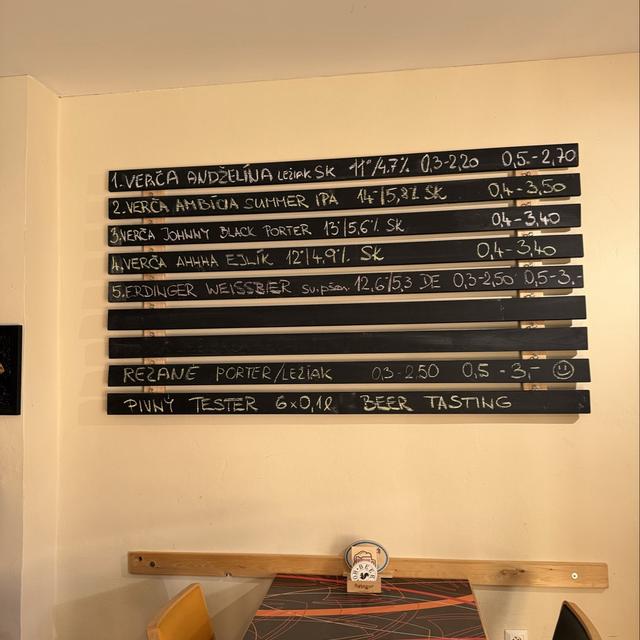 1. VERČA ANDŽELÍNA LEŽIAK SK 11°/4,7% 0,3-2,20 0,5-2,70
2. VERČA AMBÍCIA SUMMER IPA 14°/5,8% SK 0,4-3,50
3. VERČA JOHNNY BLACK PORTER 13°/5,6% SK 0,4-3,40
4. VERČA AHHHA EJLÍK 12°/4,9% SK 0,4-3,40
5. ERDINGER WEISSBIER sv.pšen. 12,6°/5,3 DE 0,3-2,50 0,5-3,-
REZANÉ PORTER/LEŽIAK 0,3-2,50 0,5-3,-
PIVNÝ TESTER 6x0,1l BEER TASTING
BEER